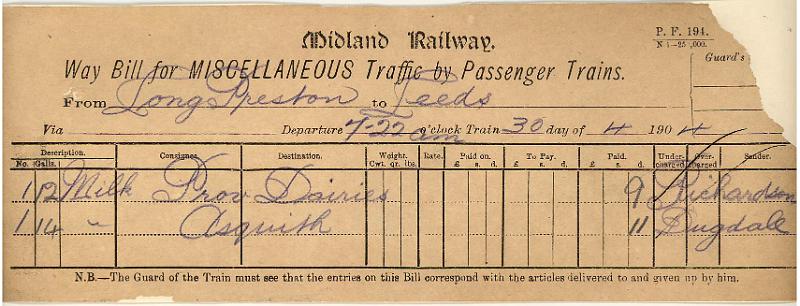 Midland Railway.
P. F. 194.
N 1-25,000.
Way Bill for MISCELLANEOUS Traffic by Passenger Trains.
Guard's
From Long Preston to Leeds
Via Departure 7-22 am o'clock Train 30 day of 4 1904
Description. Consignee. Destination. Weight. Rate. Paid on. To Pay. Paid. Under-charged Over-charged Sender.
No. Galls. Cwt. qr. lbs. £ s. d. £ s. d. £ s. d.
1 12 Milk Prov Dairies 9 Richardson
1 14 " Asquith 11 Dugdale
N.B.—The Guard of the Train must see that the entries on this Bill correspond with the articles delivered to and given up by him.